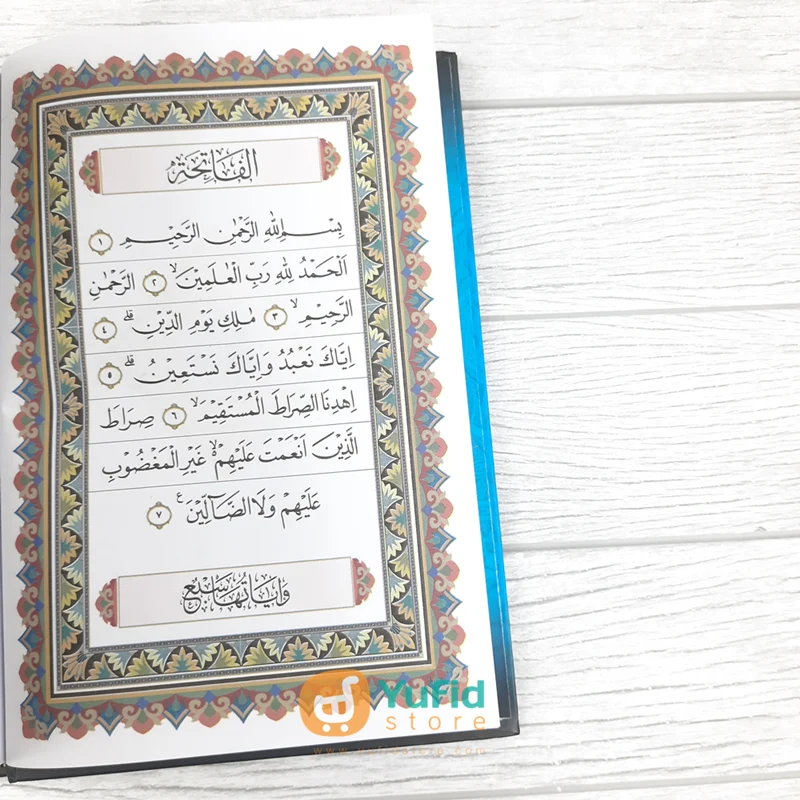 الفَاتِحَة
بِسْمِ اللّٰهِ الرَّحْمٰنِ الرَّحِيْمِ ١
اَلْحَمْدُ لِلّٰهِ رَبِّ الْعٰلَمِيْنَۙ ٢ الرَّحْمٰنِ
الرَّحِيْمِۙ ٣ مٰلِكِ يَوْمِ الدِّيْنِۗ ٤
اِيَّاكَ نَعْبُدُ وَاِيَّاكَ نَسْتَعِيْنُۗ ٥
اِهْدِنَا الصِّرَاطَ الْمُسْتَقِيْمَۙ ٦ صِرَاطَ
الَّذِيْنَ اَنْعَمْتَ عَلَيْهِمْ ەۙ غَيْرِ الْمَغْضُوْبِ
عَلَيْهِمْ وَلَا الضَّاۤلِّيْنَ ࣖ ٧
وَاٰيَاتُهَا سَبْعٌ
Yufid
store
www.yufidstore.com